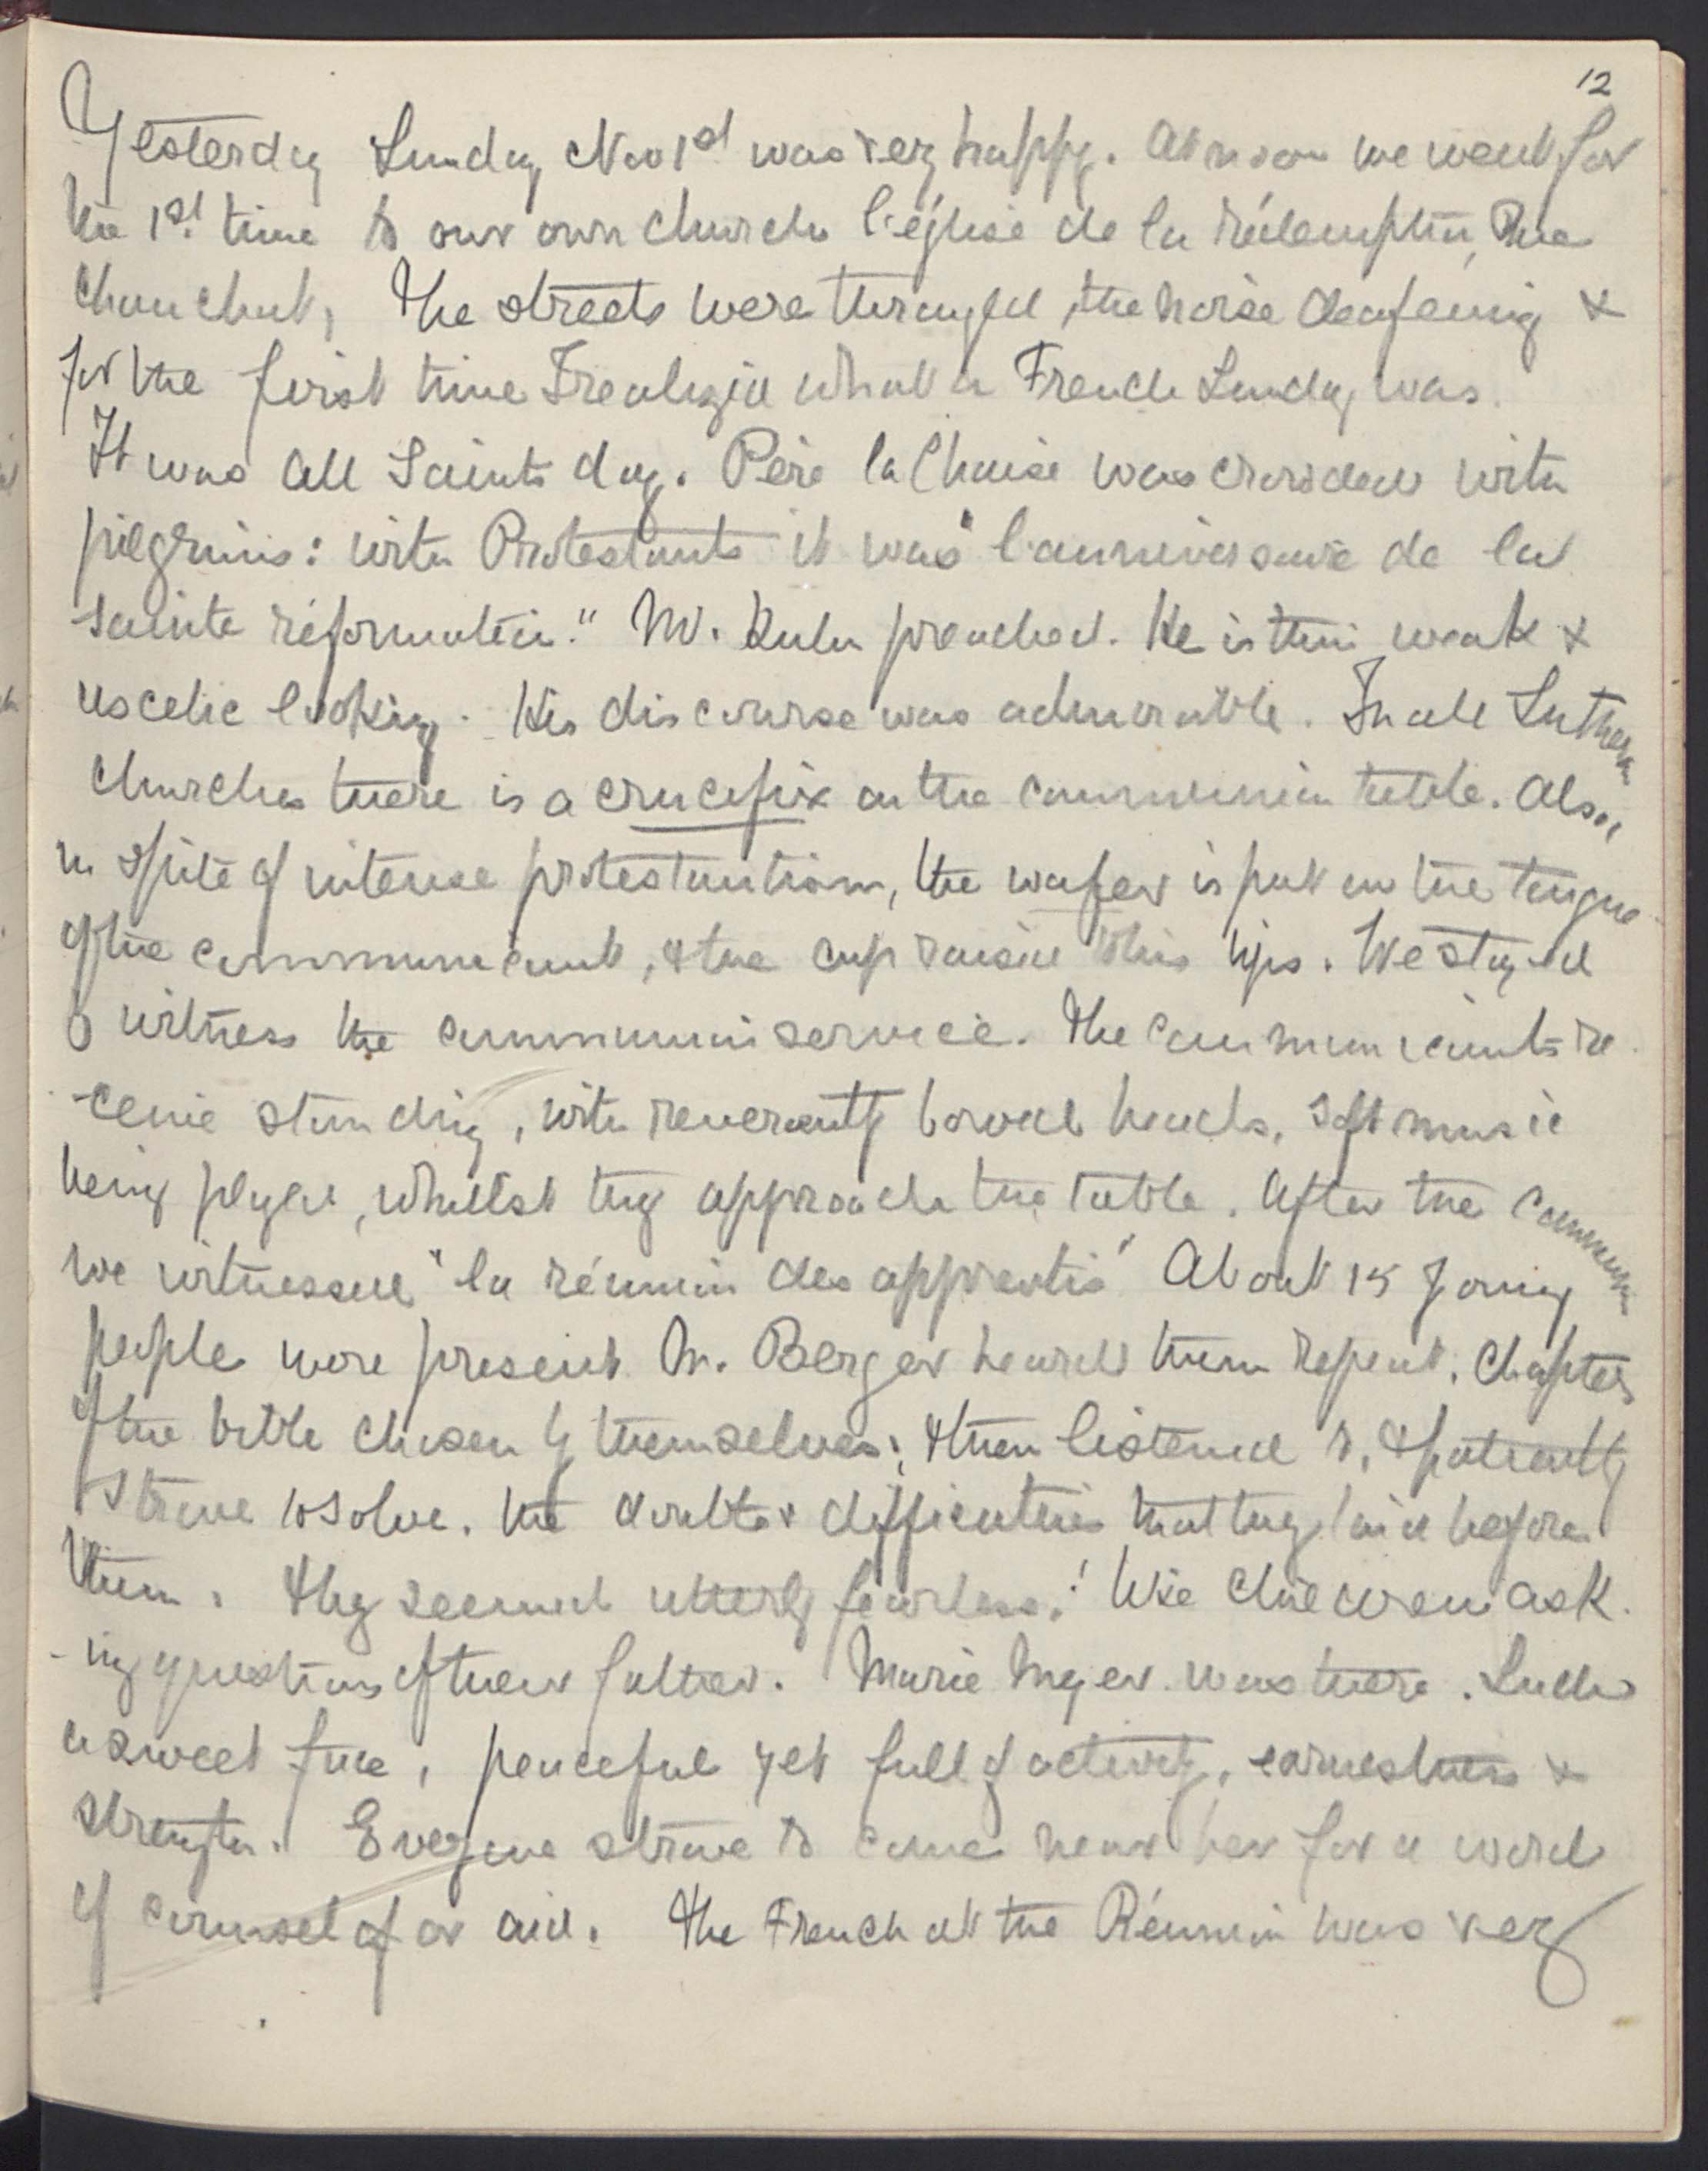 12
Yesterday Sunday Nov 1st was very happy. At noon we went for
the 1st time to our own church l'église de la rédemption, Rue
Chauchat, The streets were thronged, the noise deafening &
for the first time I realized what a French Sunday was.
It was All Saints day. Père la Chaise was crowded with
pilgrims: with Protestants it was "l'anniversaire de la
sainte réformation." M. Kuhn preached. He is thin weak &
ascetic looking. His discourse was admirable. In all Lutheran
Churches there is a crucifix on the communion table. Also,
in spite of intense protestantism, the wafer is put on the tongue
of the communicant, & the cup raised to his lips. We stayed
to witness the communion service. The communicants re
-ceive standing, with reverently bowed heads, soft music
being played, whilst they approach the table. After the Communion
we witnessed "la réunion des apprentis" About 15 young
people were present M. Berger heard them repeat, Chapters
of the bible chosen by themselves; & then listened to, & patiently
strove to solve, the doubts & difficulties that they laid before
him. They seemed utterly fearless! like children ask
-ing questions of their father. Marie Meyer was there. Such
a sweet face, peaceful yet full of activity, earnestness &
strength. Everyone strove to come near her for a word
of counsel of or aid. The French at the Réunion was very